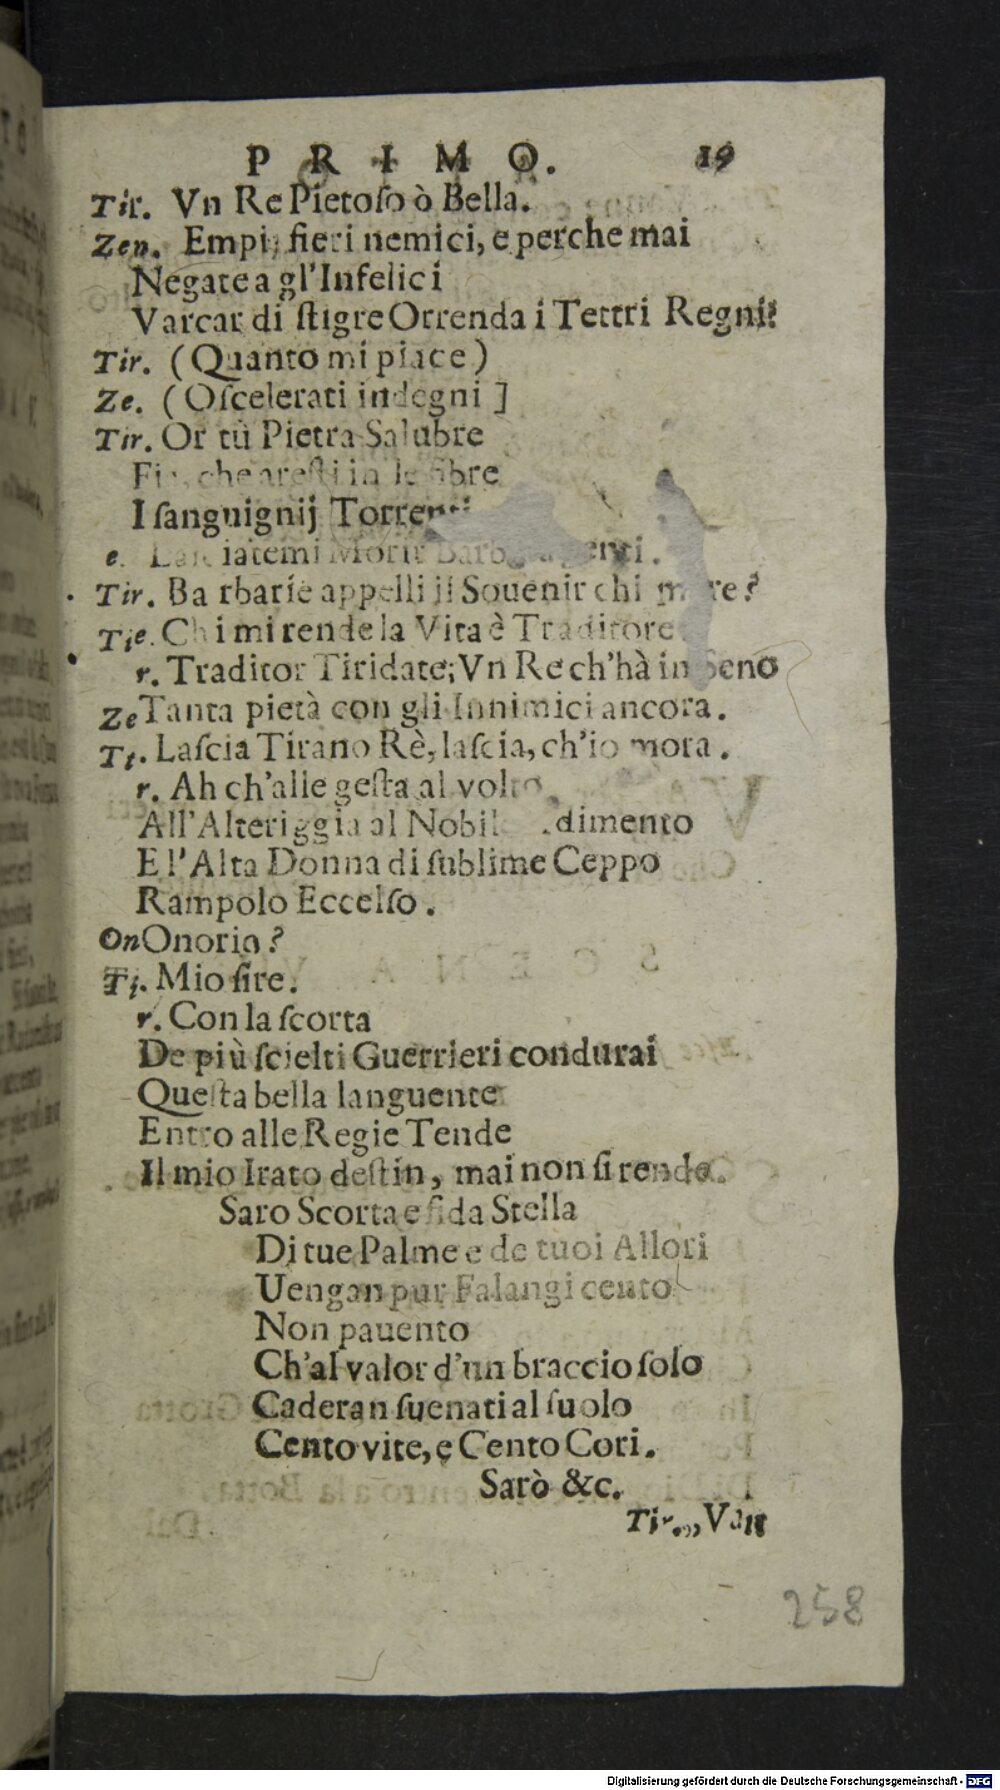 PRIMO. 19
Tir. Vn Re Pietoſo ò Bella.
Zen. Empi, fieri nemici, e perche mai
Negate a gl'Infelici
Varcar di ſtigre Orrenda i Tettri Regni?
Tir. (Quanto mi piace)
Ze. (O ſcelerati indegni ]
Tir. Or tù Pietra Salubre
che areſti in le fibre
I ſanguignij Torrenti
e. Laſciatemi Morir
Tir. Ba rbarie appelli il Souenir chi more?
Tie. Chi mi rende la Vita è Traditore
r. Traditor Tiridate; Vn Re ch'hà in Seno
Ze Tanta pietà con gli Innimici ancora.
Ti. Laſcia Tirano Rè, laſcia, ch'io mora.
r. Ah ch'alle geſta al volto
All'Alteriggia al Nobil dimento
E l'Alta Donna di ſublime Ceppo
Rampolo Eccelſo.
On Onorio?
Ti. Mio ſire.
r. Con la ſcorta
De più ſcielti Guerrieri condurai
Queſta bella languente
Entro alle Regie Tende
Il mio Irato deſtin, mai non ſi rende.
Saro Scorta e fida Stella
Di tue Palme e de tuoi Allori
Uengan pur Falangi cento
Non pauento
Ch'al valor d'un braccio ſolo
Caderan ſuenati al ſuolo
Cento vite, e Cento Cori.
Sarò &c.
Tir.
258
Digitalisierung gefördert durch die Deutsche Forschungsgemeinschaft - DFG